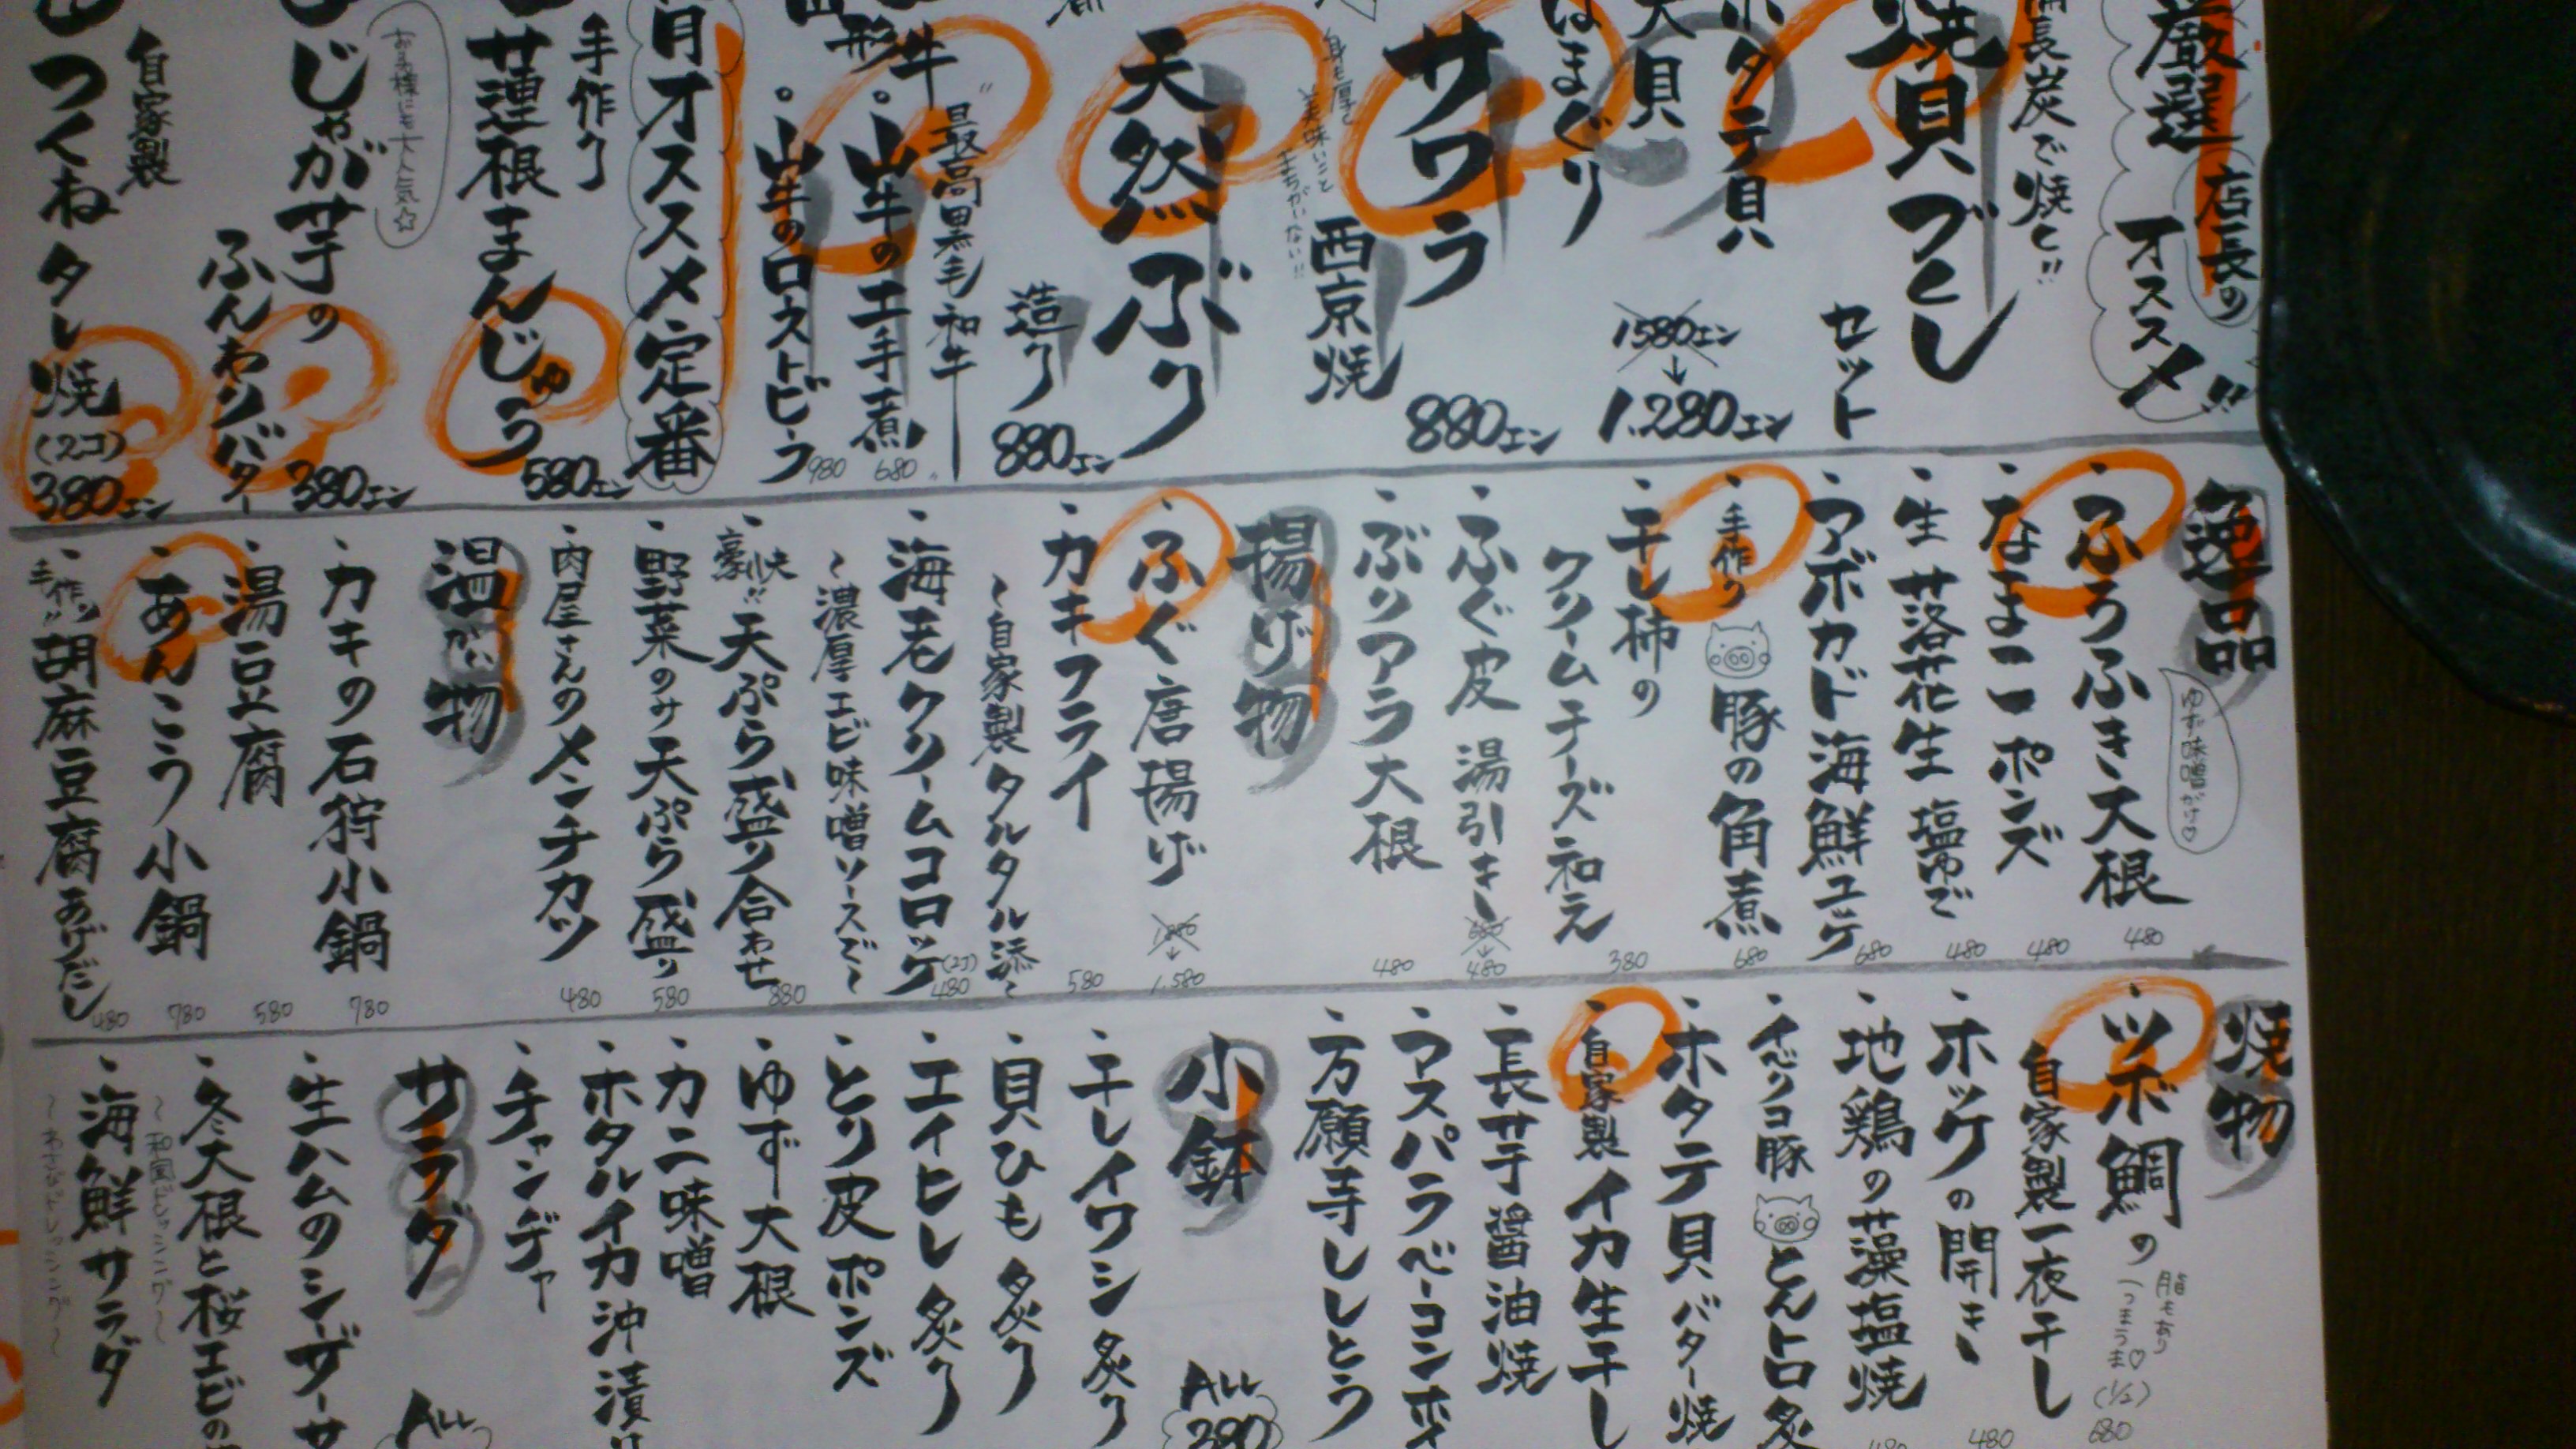 厳選
店長の
オススメ!!
長炭で焼く!!
焼貝づくし
セット
ホタテ貝
大貝
はまぐり
1580エン
↓
1.280エン
サワラ
西京焼
880エン
身も厚く
美味いこと
まちがいない!!
天然ぶり
造り
880エン
"最高黒毛和牛"
山形牛
・山牛の工手煮 680
・山牛のロストビーフ 980
オススメ定番
手作り
蓮根まんじゅう
580エン
お子様にも大人気☆
じゃが芋の
ふんわりバター
380エン
自家製
つくねタレ焼
(2コ)
380エン
逸品
ゆず味噌がけ♡
・ふろふき大根 480
・なまこポンズ 480
・生落花生 塩ゆで 480
・アボカド海鮮ユッケ 680
・手作り豚の角煮 680
・干し柿の
クリームチーズ和え 380
・ふぐ皮 湯引き 680→480
・ぶりアラ大根 480
揚げ物
・ふぐ唐揚げ 1.880→1.580
・カキフライ 580
~自家製タルタル添~
・海老クリームコロッケ (2コ) 480
~濃厚エビ味噌ソースで~
・豪快!!天ぷら盛り合わせ 880
・野菜のみ天ぷら盛り 580
・肉屋さんのメンチカツ 480
温かい物
・カキの石狩小鍋 780
・湯豆腐 580
・あんこう小鍋 780
・手作り!!胡麻豆腐あげだし 480
焼物
・ツボ鯛の
自家製一夜干し
脂もあり
(1/2)
680
・ホッケの開き 480
・地鶏の藻塩焼 480
・イベリコ豚とんトロ炙
・ホタテ貝バター焼
・自家製イカ生干し
・長芋醤油焼
・アスパラベーコン
・万願寺ししとう
小鉢
ALL
380
・干しイワシ炙り
・貝ひも炙り
・エイヒレ炙り
・とり皮ポンズ
・ゆず大根
・カニ味噌
・ホタルイカ沖漬け
・チャンヂャ
サラダ
ALL
・生ハムのシーザーサ
・冬大根と桜エビの
~和風ドレッシング~
・海鮮サラダ
~わさびドレッシング~